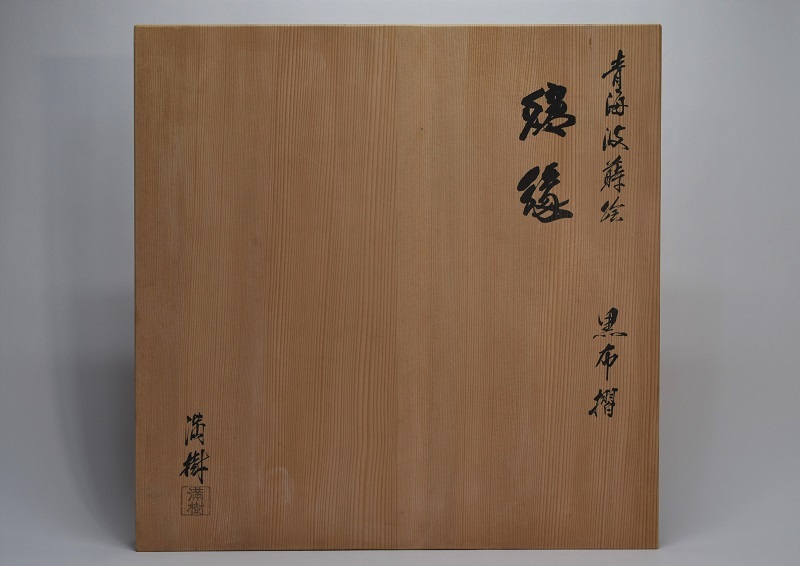 青海波蒔絵 黒布摺
炉縁
満樹
満樹